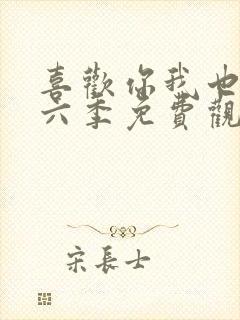 喜歡你我也
六季免費觀
宋長士